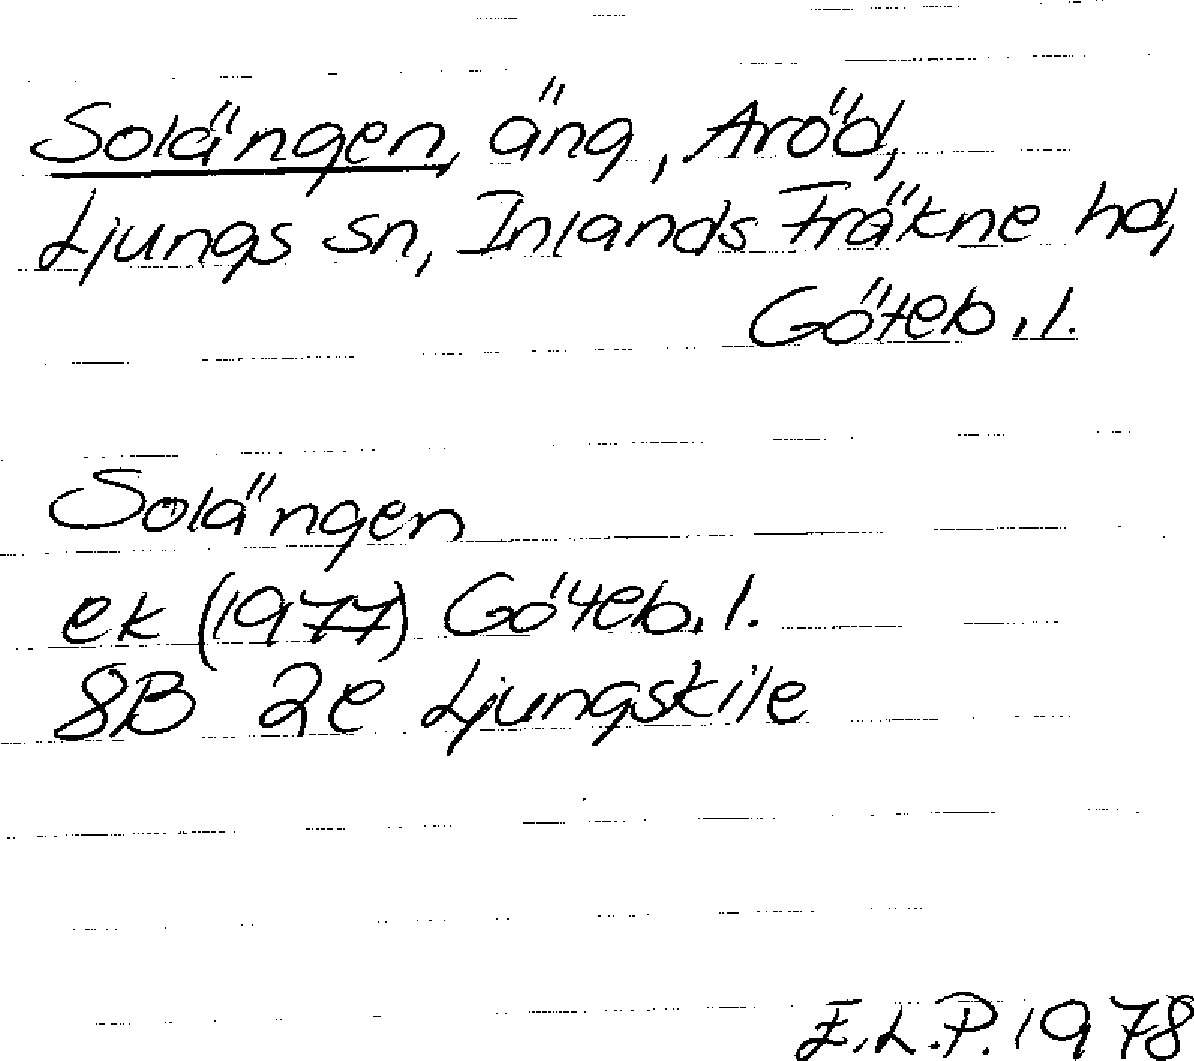 Solängen, äng, Aröd,
Ljungs sn, Inlands Fräkne hd,
Göteb.l.
Solängen
ek (1977) Göteb.l.
8B 2e Ljungskile
E.L.P. 1978